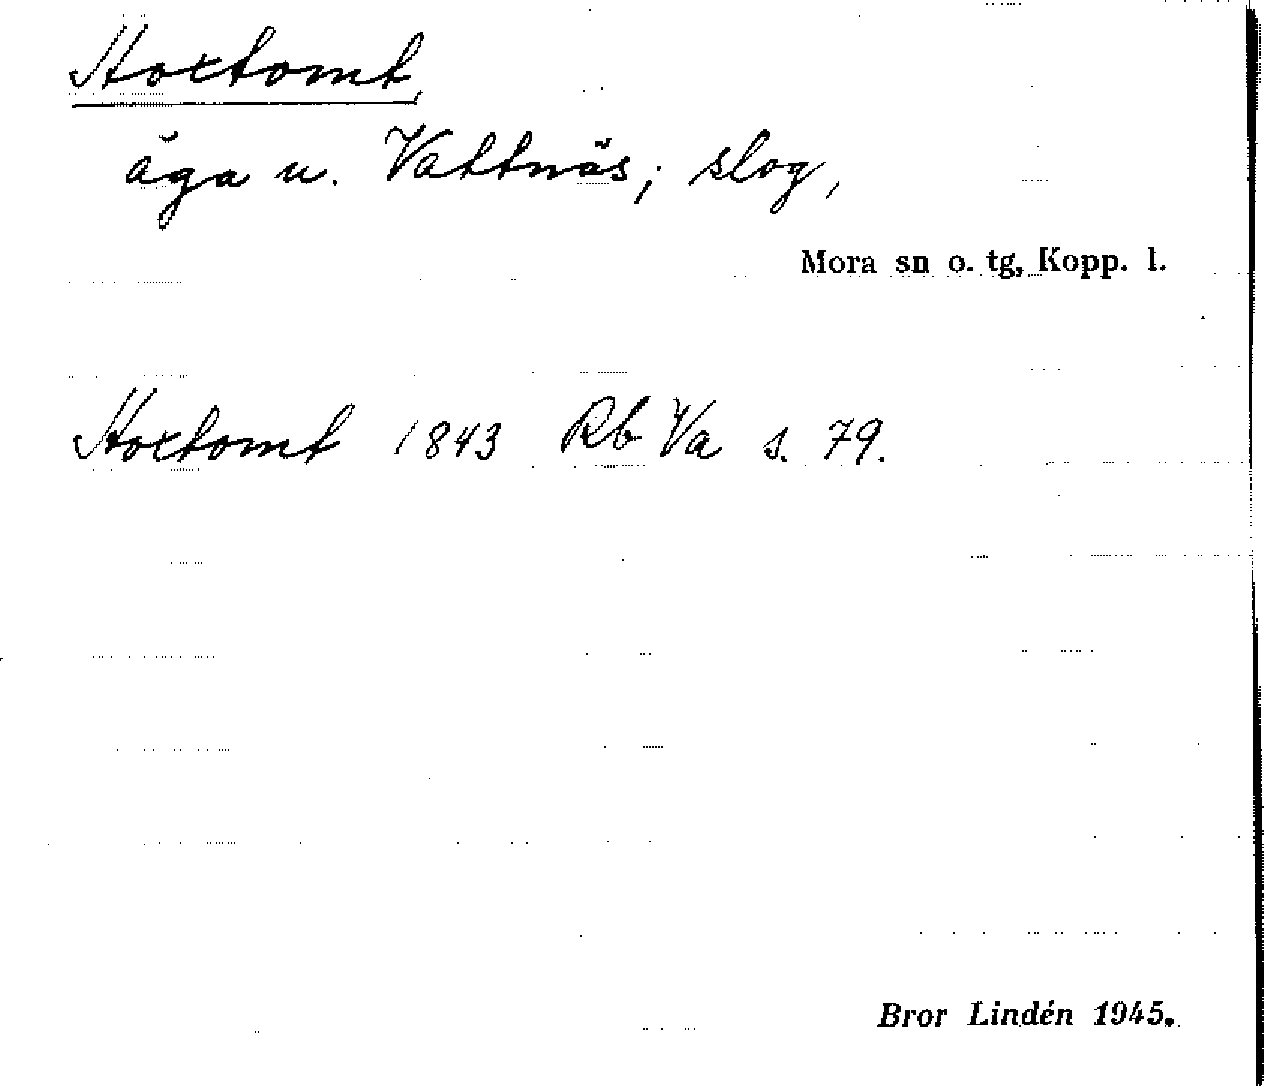 Stortomt,
äga u. Vattnäs; slog,
Mora sn o. tg, Kopp. l.
Stortomt 1843 Rb Va s. 79.
Bror Lindén 1945.